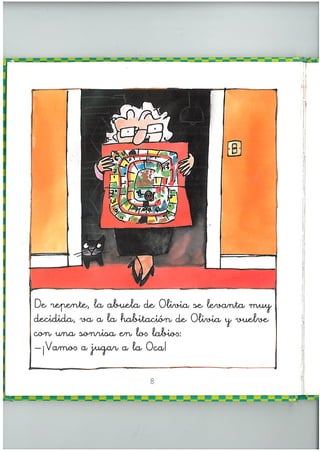 De repente, la abuela de Olivia se levanta muy
decidida, va a la habitación de Olivia y vuelve
con una sonrisa en los labios:
–¡Vamos a jugar a la Oca!
8